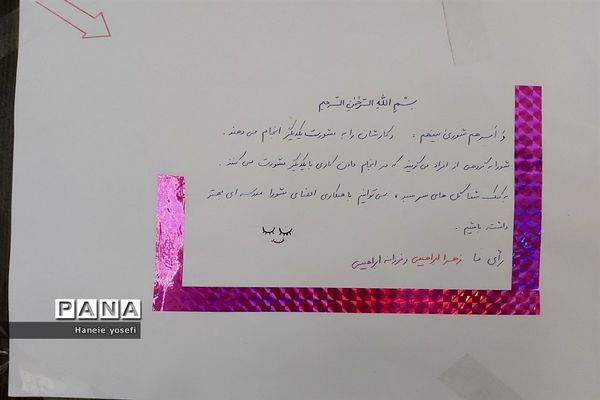 بسم الله الرحمن الرحیم
و أمرهم شوری بینهم : و کارشان را به مشورت یکدیگر انجام می دهند .
شورا به گروهی از افراد می گویند که در انجام دادن کاری با یکدیگر مشورت می کنند .
به کمک شما گل های سر سبد ، می توانیم با همکاری اعضای شورا مدرسه ای بهتر
داشته باشیم .
رأی ما زهرا ابراهیمی و فرزانه ابراهیمی
PANA
Haneie yosefi